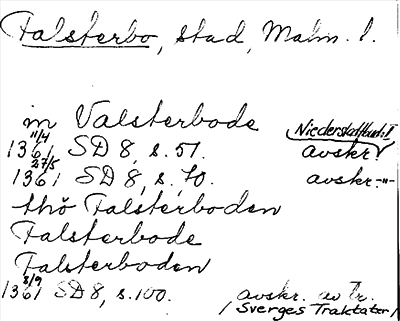 Falsterbo, stad, Malm. l.
in Valsterbode
11/4 Niederstadtbuch II
1361 SD 8, s. 51. avskr.
27/5
1361 SD 8, s. 70. avskr. -"-
thŏ Falsterboden
Falsterbode
Falsterboden
8/9
1361 SD 8, s. 100. avskr. av tr.
/Sverges Traktater/